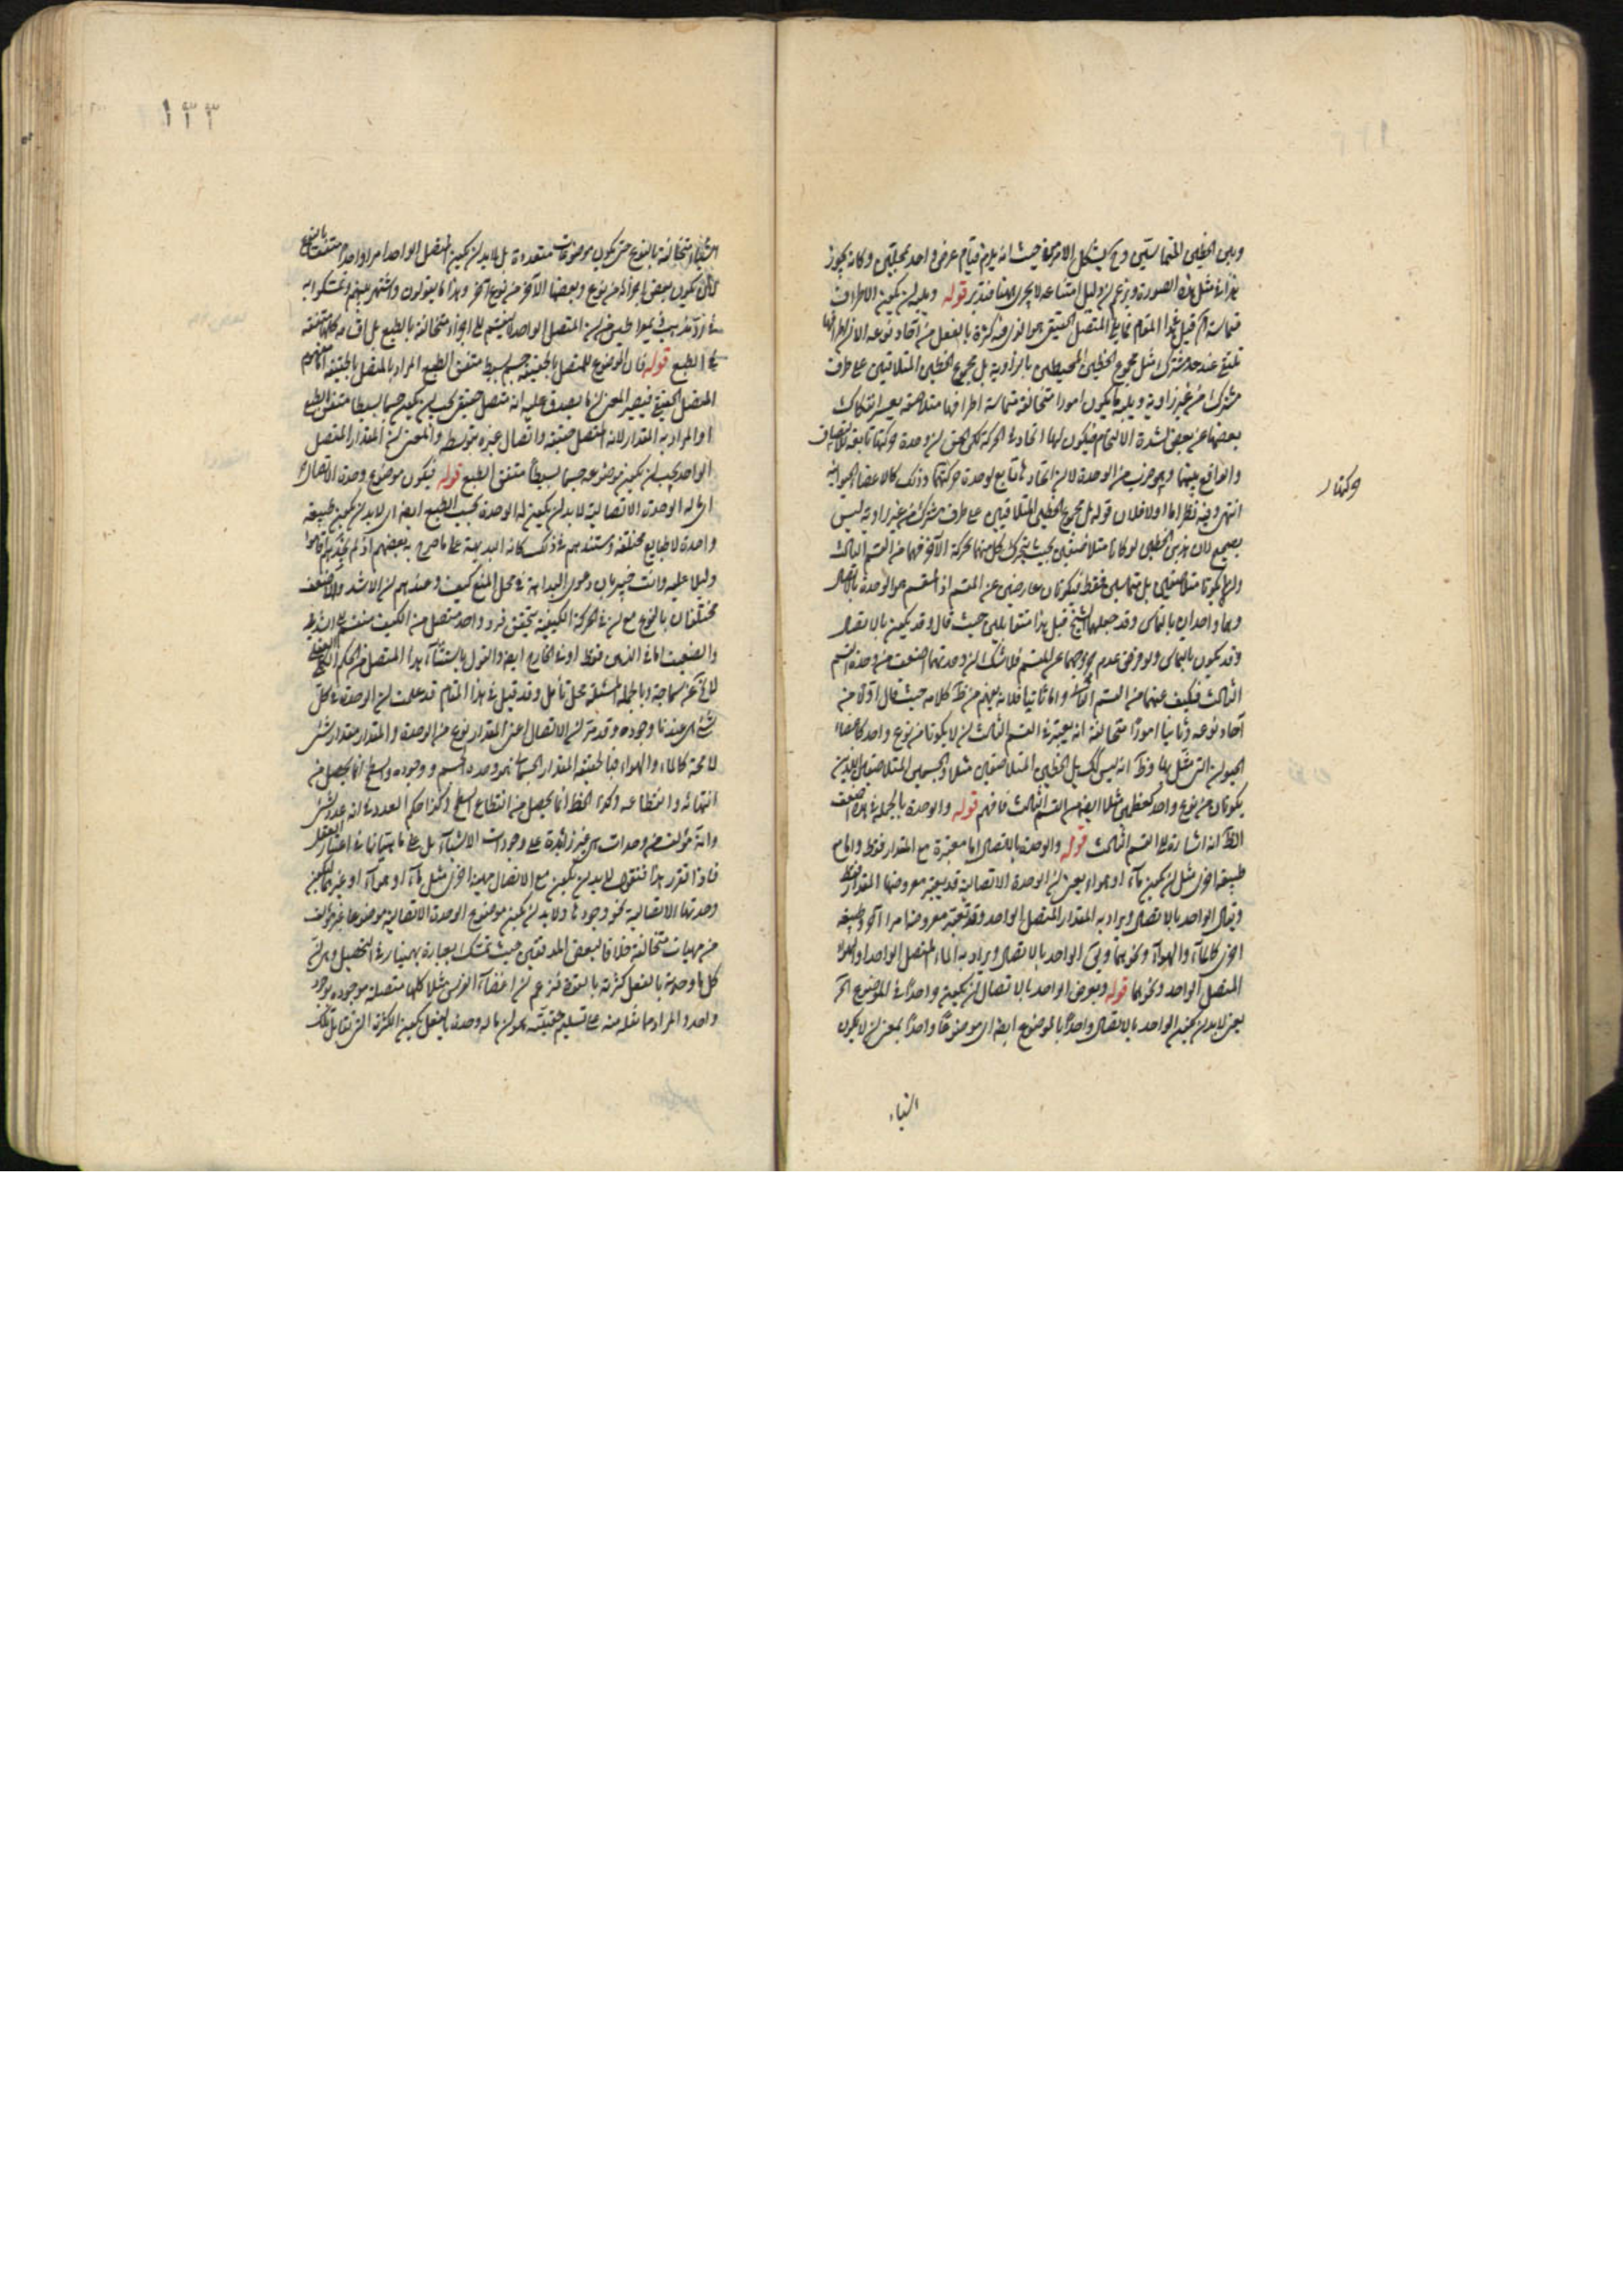 وبين الخطين المتماسين وح يشكل الامر حيث انه يلزم قيام عرض واحد بمحلين وكانه يجوز
مثل هذه الصورة وزعم ان دليل امتناعه لا يجرى هنا فتدبر قوله ويليه ان يكون الاطراف
متماسة قيل هذا المقام المتصل الحقيقى هو الذى فيه كثرة بالفعل من آحاد نوعه الا ان اطرافها
تلتقى عند حد مشترك مثل مجموع الخطين المحيطين بالزاوية بل مجموع الخطين المتلاقيين على طرف
مشترك من غير زاوية ويليه ما يكون امورا متخالفة متماسة اطرافها متلاصقة يعسر انفكاك
بعضها عن بعض لشدة الالتحام فيكون لها اتحاد فى الحركة لكن الحق ان وحدة حركتها تابعة للالتصاق
والواقع بينهما وهو ضرب من الوحدة لا ان اتحادها تابع لوحدة حركتها وذلك كالاعضاء الحيوانية
انتهى وفيه نظر اما اولا فلان قوله بل مجموع الخطين المتلاقيين على طرف مشترك من غير زاوية ليس
بصحيح لان هذين الخطين لو كانا متلاصقين بحيث يتحرك كل منهما بحركة الآخر فهما من القسم الثالث
وان لم يكونا متلاصقين بل متماسين فقط فيكونان خارجين عن المقسم اذ المقسم هو الوحدة بالاتصال
وهما واحدان بالتماس وقد جعلهما الشيخ قبل هذا متقابلين حيث قال وقد يكون بالاتصال
وقد يكون بالتماس ولو فرض عدم خروجهما عن المقسم فلا شك ان وحدتهما اضعف من وحدة القسم
الثالث فكيف عدهما من القسم الثانى واما ثانيا فلانه يفهم من ظ كلامه حيث قال اولا من
آحاد نوعه وثانيا امورا متخالفة انه يعتبر فى القسم الثالث ان لا يكونا من نوع واحد كاعضاء
الحيوان التى مثل بها وظ انه ليس كك بل الخطين المتلاصقين مثلا والجسمين المتلاصقين اللذين
يكونان من نوع واحد كعظمين مثلا ايضا من القسم الثالث فافهم قوله والوحدة بالجملة فى هذه اضعف
الظ انه اشارة الى القسم الثالث قوله والوحدة بالاتصال اما معتبرة مع المقدار فقط واما مع
طبيعة اخرى مثل ان يكون ماء او هواء يعنى ان الوحدة الاتصالية قد يعتبر معروضها المقدار فقط
ويقال الواحد بالاتصال ويراد به المقدار المتصل الواحد وقد يعتبر معروضها امرا آخر وطبيعة
اخرى كالماء والهواء ونحوهما ويق الواحد بالاتصال ويراد به الماء المتصل الواحد او الهواء
المتصل الواحد ونحوهما قوله ويعرض الواحد بالاتصال ان يكون واحدا فى الموضوع الخ
يعنى لا بد ان يكون الواحد بالاتصال واحدا بالموضوع ايضا اى موضوعا واحدا بمعنى ان لا يكون
اشياء
وكذا
١٣٣
اشياء متخالفة بالنوع حتى يكون موضوعات متعددة بل لا بد ان يكون المتصل الواحد امرا واحدا متفقا بالنوع
لا ان يكون بعض اجزائه من نوع وبعضها الآخر من نوع آخر وهذا ما يقولون واشتهر بينهم وتمسكوا به
فى رد مذهب ذيمقراطيس من ان المتصل الواحد لا ينقسم الى اجزاء متخالفة بالطبع بل اقسامه كلها متفقة
فى الطبع قوله فان الموضوع للمتصل بالحقيقة جسم بسيط متفق الطبع المراد بالمتصل بالحقيقة اما مفهوم
المتصل الحقيقى فيصير المعنى ان ما يصدق عليه انه متصل حقيقى يجب ان يكون جسما بسيطا متفق الطبع
او المراد به المقدار لانه المتصل حقيقة واتصال غيره بتوسطه والمعنى ان المقدار المتصل
الواحد يجب ان يكون موضوعه جسما بسيطا متفق الطبع قوله فيكون موضوع وحدة الاتصال
اى ما له الوحدة الاتصالية لا بد ان يكون له الوحدة بحسب الطبع ايضا اى لا بد ان يكون طبيعة
واحدة لا طبايع مختلفة ومستندهم فى ذلك كانه البديهة على ما صرح به بعضهم اذ لم نجدهم اقاموا
دليلا عليه وانت خبير بان دعوى البداهة فى محل المنع كيف وعندهم ان الاشد والاضعف
مختلفان بالنوع مع ان فى الحركة الكيفية يتحقق فرد واحد متصل من الكيف منقسم الى الشديد
والضعيف اما فى الذهن فقط او فى الخارج ايضا والقول باستثناء هذا المتصل من الحكم الكلى
لا يخ عن سماجة وبالجملة المسئلة محل تأمل وقد قيل فى هذا المقام قد علمت ان الوحدة فى كل
شئ هى عندنا وجوده وقد مر ان الاتصال اعنى المقدار نوع من الوحدة والمقدار مقدار لشئ
لا محة كالماء والهواء فبالحقيقة المقدار الجسمانى هو وحدة الجسم ووجوده والسطح انما يحصل من
انتهائه وانقطاعه وكذا الخط انما يحصل من انقطاع السطح وكذا حكم العدد فى انه عدد لشئ
وانه مؤلف من وحدات هى غير زائدة على وجودات الاشياء بل على ماهياتها فى اعتبار العقل
فاذا تقرر هذا فنقول لا بد ان يكون مع الاتصال طبيعة اخرى مثل ماء او هواء او غيرهما يكون
وحدتها الاتصالية نحو وجودها ولا بد ان يكون موضوع الوحدة الاتصالية موضوعا غير مؤلف
من مهيات متخالفة خلافا لبعض المدققين حيث تمسك بعبارة بهمنيار فى التحصيل وهى ان
كل ما وحدته بالفعل كثرته بالقوة فزعم ان اعضاء الفرس مثلا كلها متصلة موجودة بوجود
واحد والمراد مما نقله منه على تسليم حقيقته هو ان ما له وحدة بالفعل يكون الكثرة التى تقابل تلك